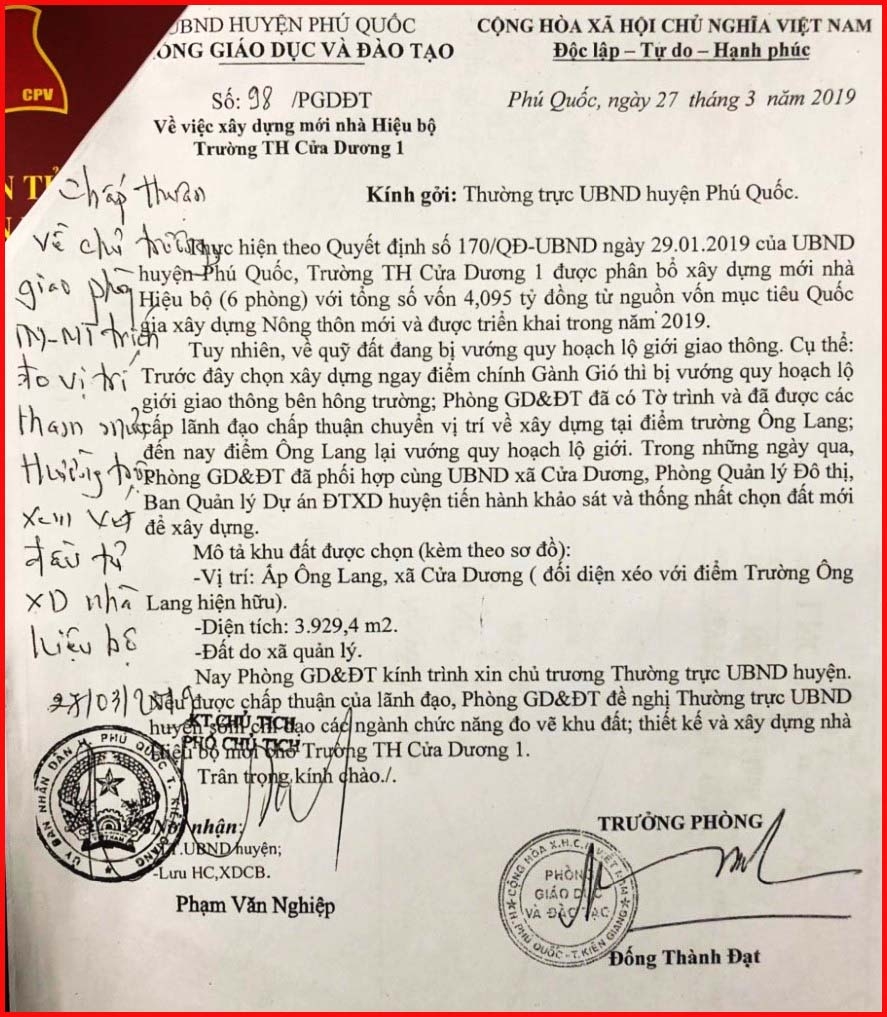 CPV
UBND HUYỆN PHÚ QUỐC
PHÒNG GIÁO DỤC VÀ ĐÀO TẠO
Số: 98 /PGDĐT
Về việc xây dựng mới nhà Hiệu bộ
Trường TH Cửa Dương 1
CỘNG HÒA XÃ HỘI CHỦ NGHĨA VIỆT NAM
Độc lập – Tự do – Hạnh phúc
Phú Quốc, ngày 27 tháng 3 năm 2019
Kính gởi: Thường trực UBND huyện Phú Quốc.
Thực hiện theo Quyết định số 170/QĐ-UBND ngày 29.01.2019 của UBND
huyện Phú Quốc, Trường TH Cửa Dương 1 được phân bổ xây dựng mới nhà
Hiệu bộ (6 phòng) với tổng số vốn 4,095 tỷ đồng từ nguồn vốn mục tiêu Quốc
gia xây dựng Nông thôn mới và được triển khai trong năm 2019.
Tuy nhiên, về quỹ đất đang bị vướng quy hoạch lộ giới giao thông. Cụ thể:
Trước đây chọn xây dựng ngay điểm chính Gành Gió thì bị vướng quy hoạch lộ
giới giao thông bên hông trường; Phòng GD&ĐT đã có Tờ trình và đã được các
cấp lãnh đạo chấp thuận chuyển vị trí về xây dựng tại điểm trường Ông Lang;
đến nay điểm Ông Lang lại vướng quy hoạch lộ giới. Trong những ngày qua,
Phòng GD&ĐT đã phối hợp cùng UBND xã Cửa Dương, Phòng Quản lý Đô thị,
Ban Quản lý Dự án ĐTXD huyện tiến hành khảo sát và thống nhất chọn đất mới
để xây dựng.
Mô tả khu đất được chọn (kèm theo sơ đồ):
-Vị trí: Ấp Ông Lang, xã Cửa Dương ( đối diện xéo với điểm Trường Ông
Lang hiện hữu).
-Diện tích: 3.929,4 m2.
-Đất do xã quản lý.
Nay Phòng GD&ĐT kính trình xin chủ trương Thường trực UBND huyện.
Nếu được chấp thuận của lãnh đạo, Phòng GD&ĐT đề nghị Thường trực UBND
huyện sớm chỉ đạo các ngành chức năng đo vẽ khu đất; thiết kế và xây dựng nhà
Hiệu bộ mới cho Trường TH Cửa Dương 1.
Trân trọng kính chào./.
Chấp thuận
về chủ trương
giao phòng
TN-MT trích
đo vị trí
tham mưu
Hướng
xem xét
đầu tư
XD nhà
hiệu bộ
27/03/2019
KT.CHỦ TỊCH
PHÓ CHỦ TỊCH
ỦY BAN NHÂN DÂN H. PHÚ QUỐC T. KIÊN GIANG
Nơi nhận:
-TT.UBND huyện;
-Lưu HC,XDCB.
Phạm Văn Nghiệp
TRƯỞNG PHÒNG
CỘNG HÒA X.H.C.N VIỆT NAM
PHÒNG
GIÁO DỤC
VÀ ĐÀO TẠO
H. PHÚ QUỐC - T. KIÊN GIANG
Đống Thành Đạt